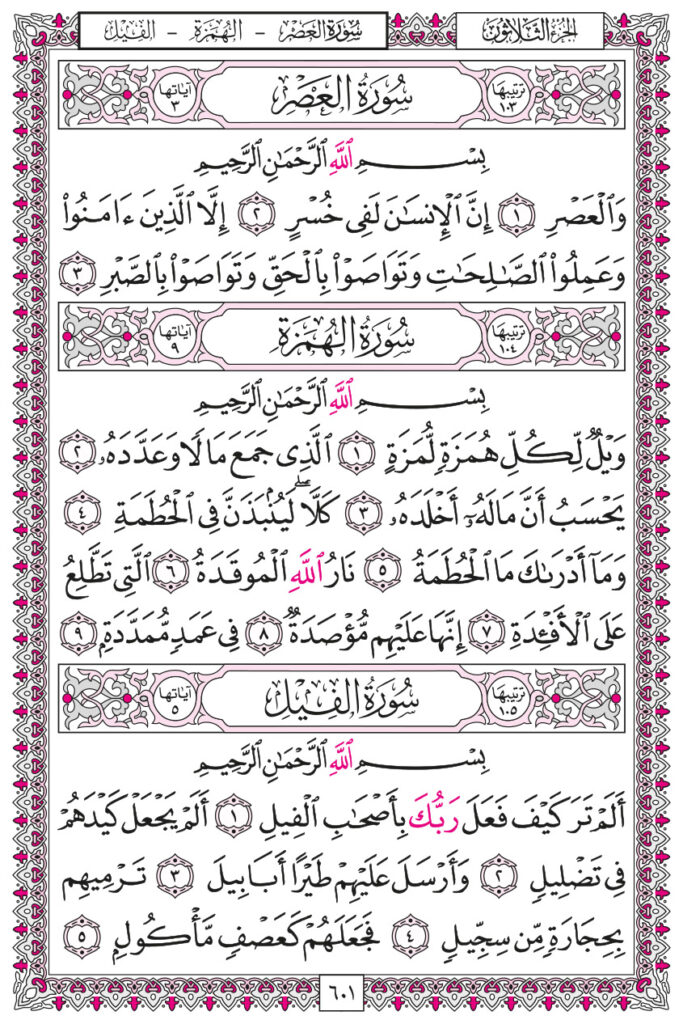 الجزء الثلاثون
سورة العصر - الهمزة - الفيل
ترتيبها ١٠٣
سُورَةُ العَصْرِ
آياتها ٣
بِسْمِ ٱللَّهِ ٱلرَّحْمَٰنِ ٱلرَّحِيمِ
وَٱلْعَصْرِ ١ إِنَّ ٱلْإِنسَٰنَ لَفِى خُسْرٍ ٢ إِلَّا ٱلَّذِينَ ءَامَنُوا۟
وَعَمِلُوا۟ ٱلصَّٰلِحَٰتِ وَتَوَاصَوْا۟ بِٱلْحَقِّ وَتَوَاصَوْا۟ بِٱلصَّبْرِ ٣
ترتيبها ١٠٤
سُورَةُ الهُمَزَةِ
آياتها ٩
بِسْمِ ٱللَّهِ ٱلرَّحْمَٰنِ ٱلرَّحِيمِ
وَيْلٌ لِّكُلِّ هُمَزَةٍ لُّمَزَةٍ ١ ٱلَّذِى جَمَعَ مَالًا وَعَدَّدَهُۥ ٢
يَحْسَبُ أَنَّ مَالَهُۥٓ أَخْلَدَهُۥ ٣ كَلَّا ۖ لَيُنۢبَذَنَّ فِى ٱلْحُطَمَةِ ٤
وَمَآ أَدْرَىٰكَ مَا ٱلْحُطَمَةُ ٥ نَارُ ٱللَّهِ ٱلْمُوقَدَةُ ٦ ٱلَّتِى تَطَّلِعُ
عَلَى ٱلْأَفْـِٔدَةِ ٧ إِنَّهَا عَلَيْهِم مُّؤْصَدَةٌ ٨ فِى عَمَدٍ مُّمَدَّدَةٍۭ ٩
ترتيبها ١٠٥
سُورَةُ الفِيلِ
آياتها ٥
بِسْمِ ٱللَّهِ ٱلرَّحْمَٰنِ ٱلرَّحِيمِ
أَلَمْ تَرَ كَيْفَ فَعَلَ رَبُّكَ بِأَصْحَٰبِ ٱلْفِيلِ ١ أَلَمْ يَجْعَلْ كَيْدَهُمْ
فِى تَضْلِيلٍ ٢ وَأَرْسَلَ عَلَيْهِمْ طَيْرًا أَبَابِيلَ ٣ تَرْمِيهِم
بِحِجَارَةٍ مِّن سِجِّيلٍ ٤ فَجَعَلَهُمْ كَعَصْفٍ مَّأْكُولٍۭ ٥
٦٠١